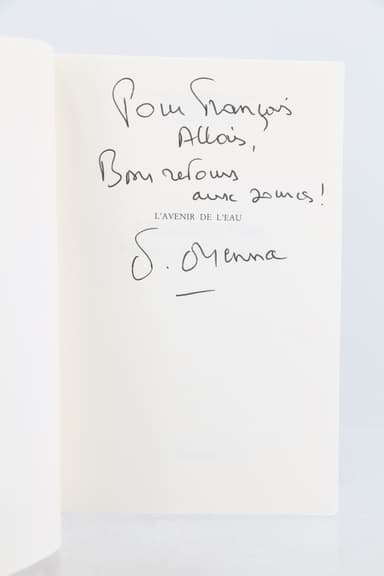 Pour François
Allais,
Bon retour
aux sources !
L'AVENIR DE L'EAU
E. Orsenna